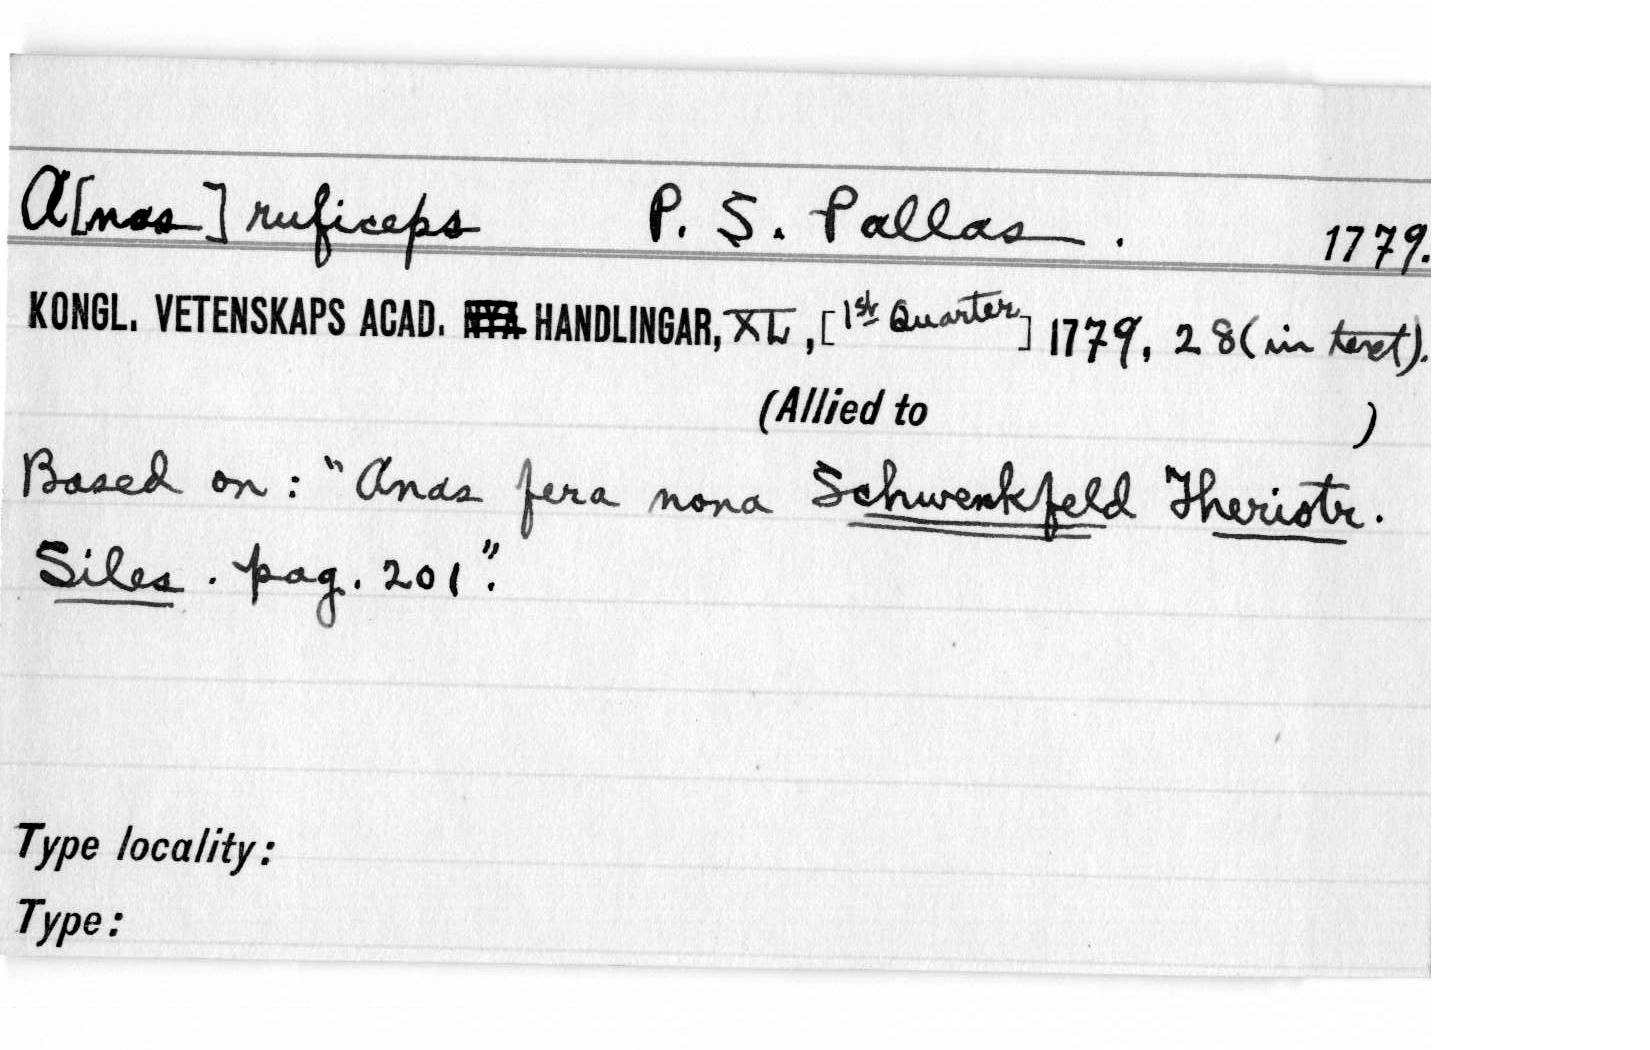 A[nas] ruficeps P. S. Pallas. 1779.
KONGL. VETENSKAPS ACAD. HANDLINGAR, XL, [1st Quarter] 1779, 28 (in text).
(Allied to )
Based on: "Anas fera nona Schwenkfeld Theriotr.
Siles. pag. 201".
Type locality:
Type: